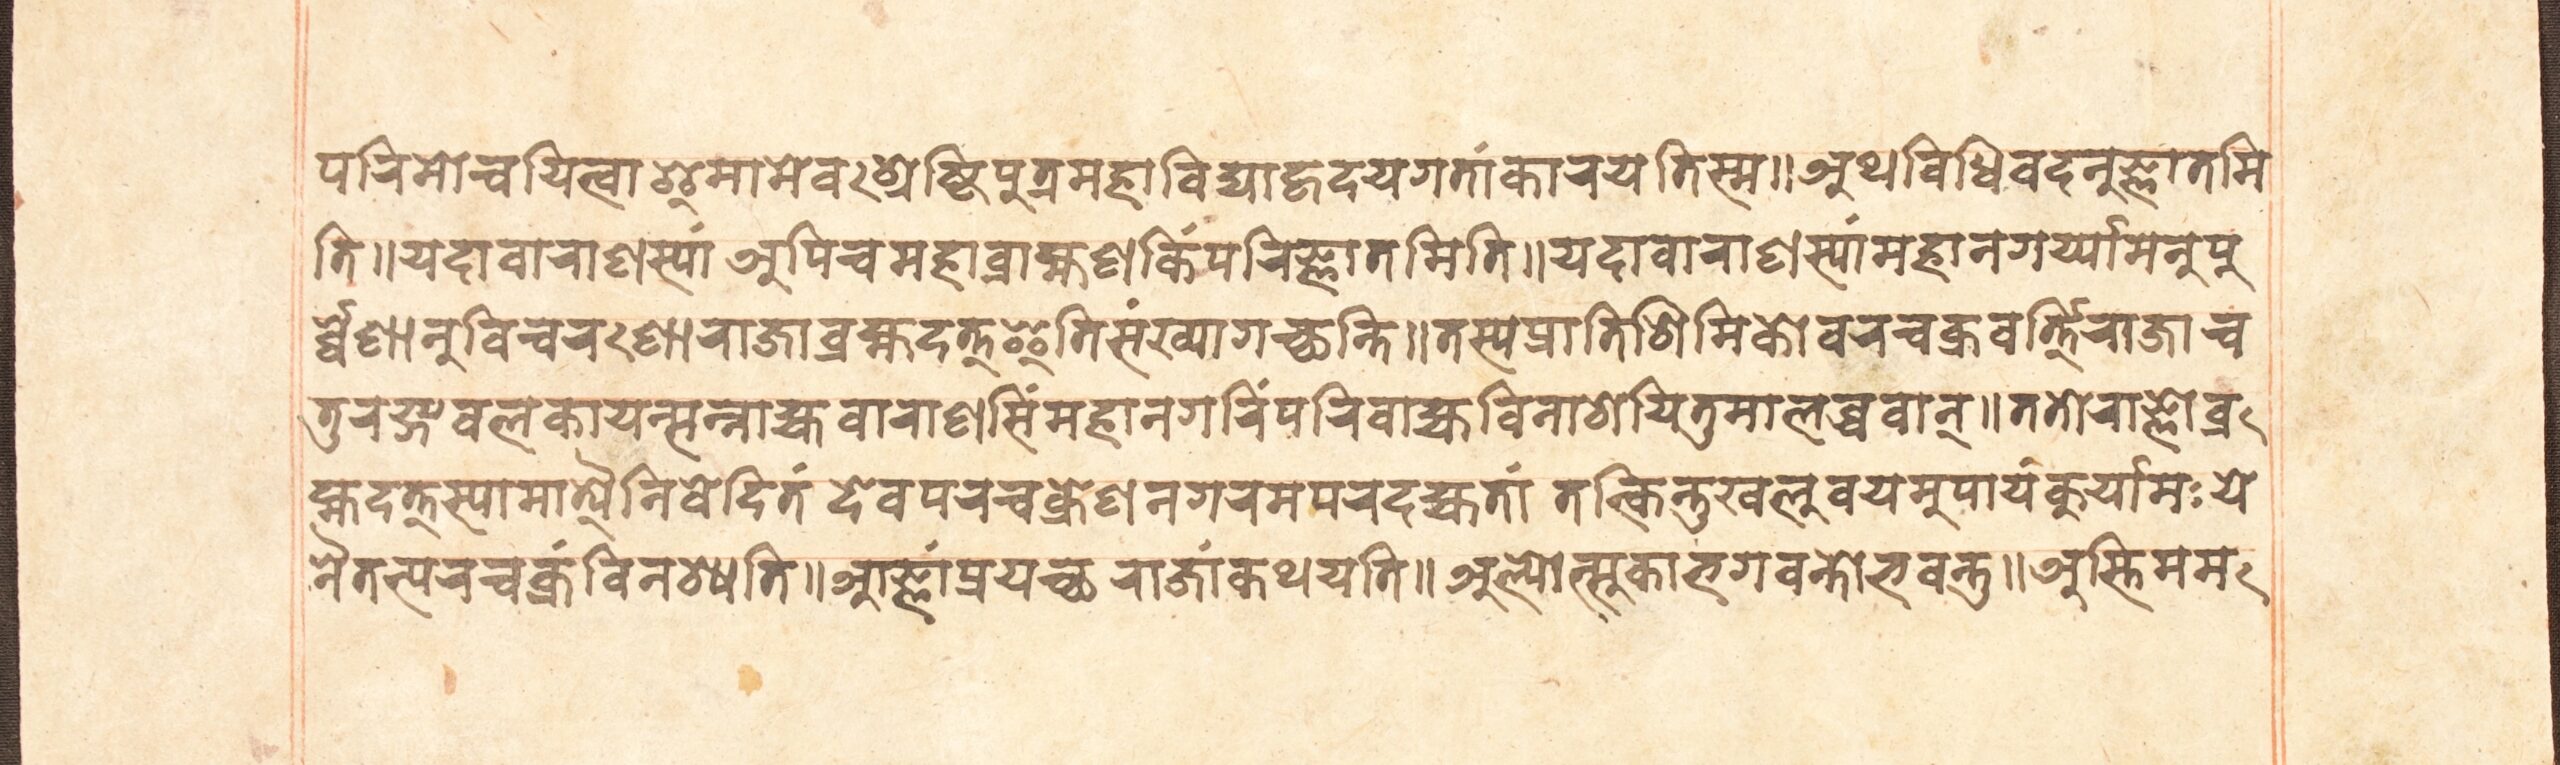 परिमोचयित्वा इमामेव श्रेष्टिपुत्रमहाविद्याहृदयगतांकारयतिस्म॥अथविधिवदनुज्ञातमि
ति॥यदावाराणस्यां अपिचमहाब्राह्मणकिंपरिज्ञातमिति॥यदावाराणस्यांमहानगर्य्यामनुपु
र्व्वेणानुविचरणाराजाब्रह्मदत्तइतिसंख्यागच्छन्ति॥तस्यप्रातिशिमिकोवरचक्रवर्त्तिराजाच
तुरङ्गवलकायन्सन्नाह्यवाराणसिंमहानगरिंपरिवाह्यविनाशेयितुमालब्धवान्॥ततोराज्ञोब्र
ह्मदत्तस्यामात्यैनिवेदितं देवपरचक्रेणनगरमपरदह्यतां तत्किन्तुखलुवयमुपायंकुर्यामःये
नैतत्परचक्रंविनश्यति॥आज्ञांप्रयच्छ राजांकथयति॥अल्पोत्सुकाभगवन्तोभवन्तु॥अस्तिमम